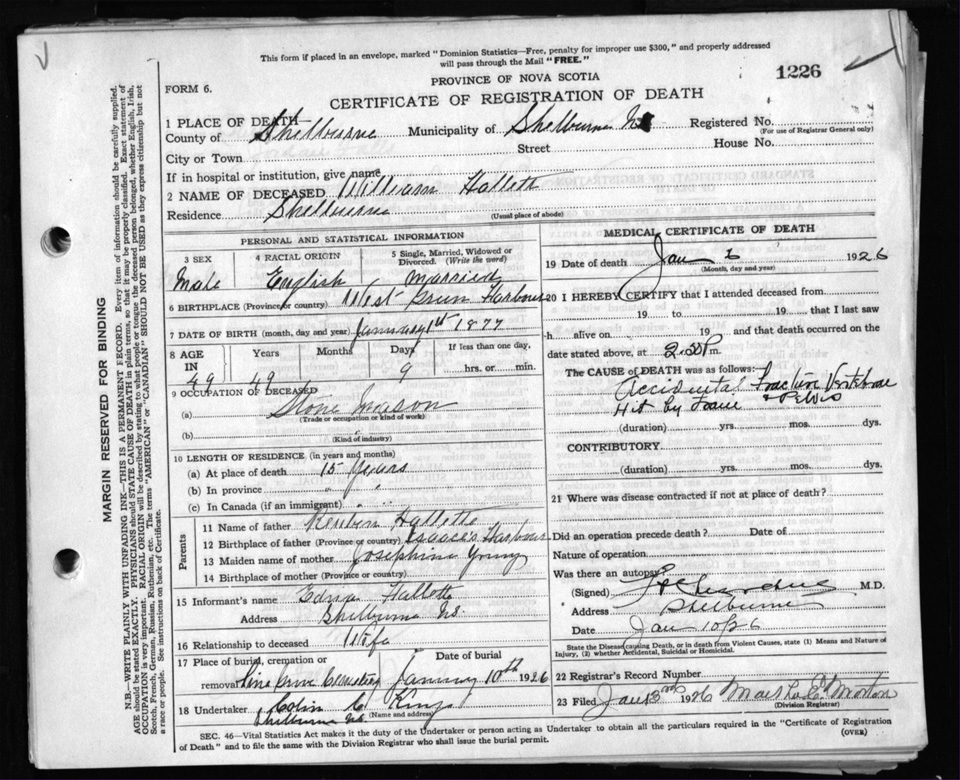 This form if placed in an envelope, marked "Dominion Statistics—Free, penalty for improper use $300," and properly addressed
will pass through the Mail "FREE."
PROVINCE OF NOVA SCOTIA
1226
FORM 6.
CERTIFICATE OF REGISTRATION OF DEATH
1 PLACE OF DEATH—
County of Shelburne Municipality of Shelburne Registered No.
(For use of Registrar General only)
City or Town Street House No.
If in hospital or institution, give name
2 NAME OF DECEASED William Hallett
Residence Shelburne
(Usual place of abode)
PERSONAL AND STATISTICAL INFORMATION
3 SEX 4 RACIAL ORIGIN 5 Single, Married, Widowed or
Divorced. (Write the word)
Male English Married
6 BIRTHPLACE (Province or country) West Harbour
7 DATE OF BIRTH (month, day and year) January 1st 1877
8 AGE Years Months Days If less than one day,
IN 49 49 9 hrs. or min.
9 OCCUPATION OF DECEASED
(a) Stone mason
(Trade or occupation or kind of work)
(b)
(Kind of industry)
10 LENGTH OF RESIDENCE (in years and months)
(a) At place of death 15 years
(b) In province " "
(c) In Canada (if an immigrant) " "
Parents
11 Name of father Hallett
12 Birthplace of father (Province or country) Isaac's Harbour
13 Maiden name of mother Josephine Young
14 Birthplace of mother (Province or country)
15 Informant's name Edna Hallett
Address Shelburne NS.
16 Relationship to deceased Wife
17 Place of burial, cremation or Date of burial
removal Pine Grove Cemetery January 10th 1926
18 Undertaker Colin C King
Shelburne NS (Name and address)
MEDICAL CERTIFICATE OF DEATH
19 Date of death Jan 6 1926
(Month, day and year)
20 I HEREBY CERTIFY that I attended deceased from
19 to 19 that I last saw
h alive on 19 and that death occurred on the
date stated above, at P m.
The CAUSE OF DEATH was as follows:
Accidental Fracture Vertebrae
Hit by & Pelvis
(duration) yrs. mos. dys.
CONTRIBUTORY.
(duration) yrs. mos. dys.
21 Where was disease contracted if not at place of death?
Did an operation precede death? Date of
Nature of operation
Was there an autopsy?
(Signed) M.D.
Address Shelburne
Date Jan 10/26
State the Disease causing Death, or in death from Violent Causes, state (1) Means and Nature of
Injury, (2) whether Accidental, Suicidal or Homicidal.
22 Registrar's Record Number
23 Filed 1926 Morton
(Division Registrar)
SEC. 46—Vital Statistics Act makes it the duty of the Undertaker or person acting as Undertaker to obtain all the particulars required in the "Certificate of Registration
of Death" and to file the same with the Division Registrar who shall issue the burial permit.
(OVER)
MARGIN RESERVED FOR BINDING
N.B.—WRITE PLAINLY WITH UNFADING INK—THIS IS A PERMANENT RECORD. Every item of information should be carefully supplied.
AGE should be stated EXACTLY. PHYSICIANS should STATE CAUSE OF DEATH in plain terms, so that it may be properly classified. Exact statement of
OCCUPATION is very important. RACIAL ORIGIN will be described by stating to what people or tongue the deceased person belonged, whether English, Irish,
Scotch, French, German, Russian, Ruthenian, etc. The terms "AMERICAN" or "CANADIAN" SHOULD NOT BE USED as they express citizenship but not
a race or people. See instructions on back of Certificate.